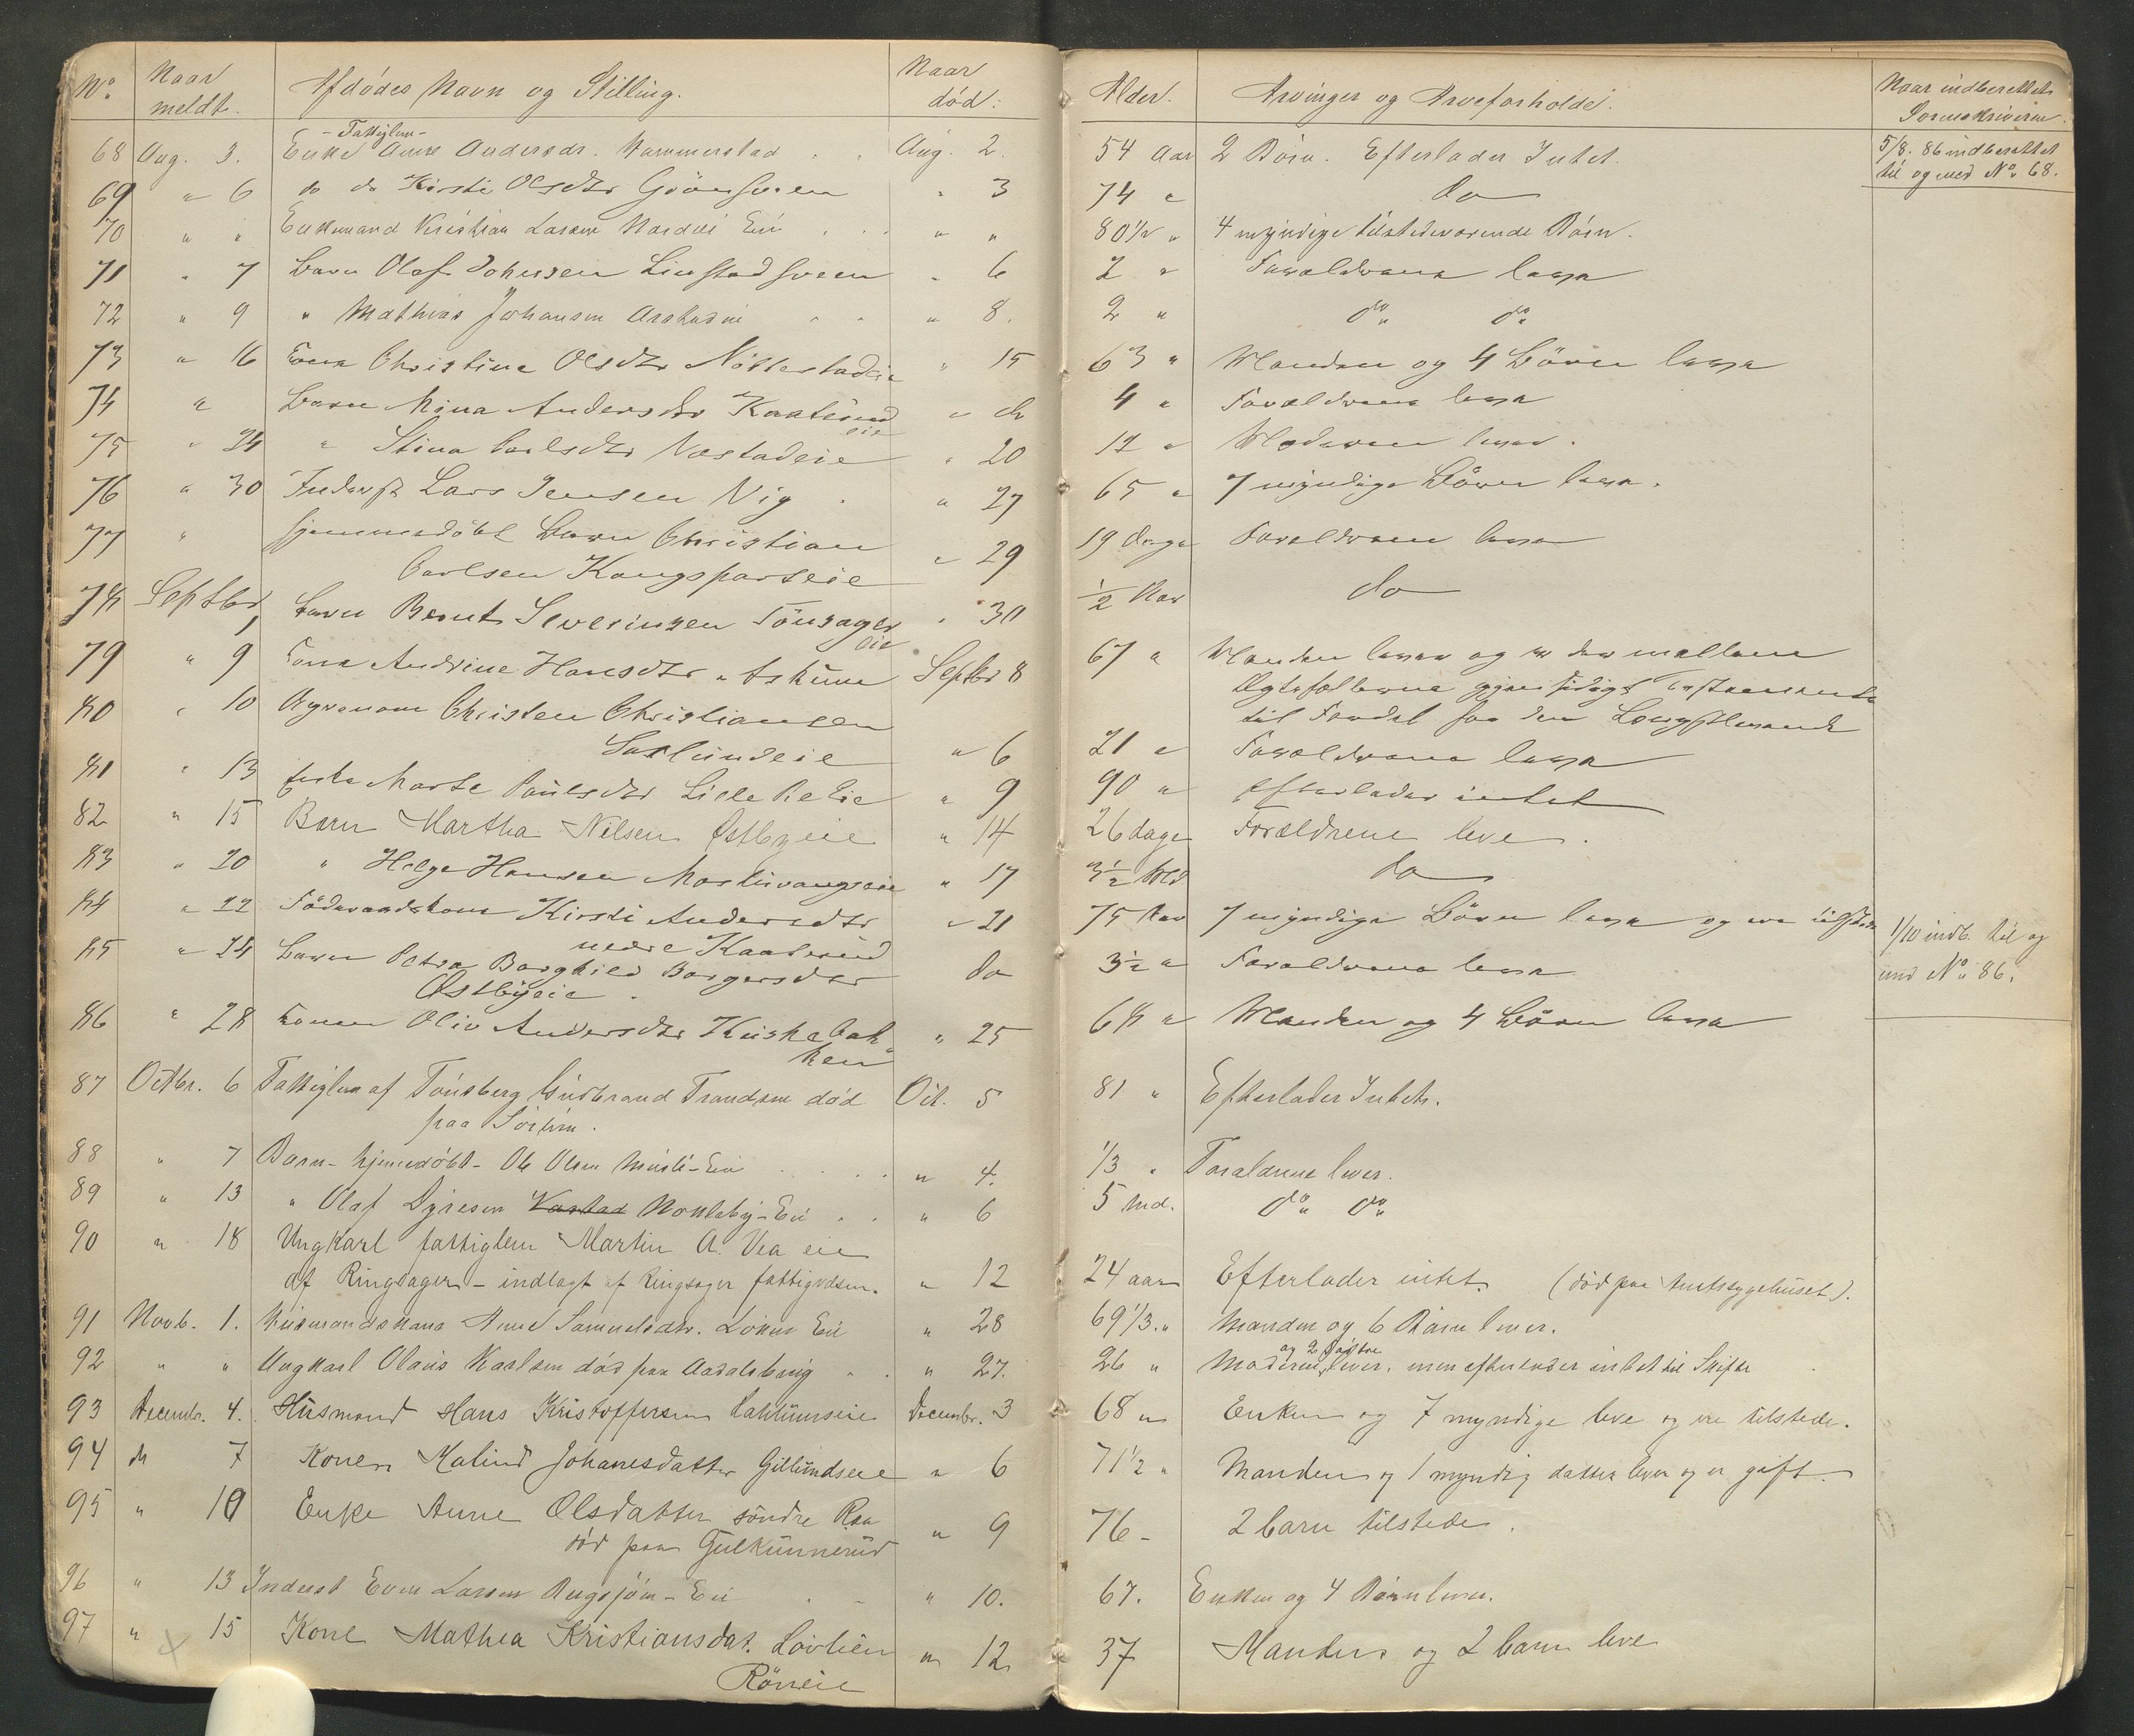 No. Naar meldt. Afdödes Navn og Stilling. Naar död: Alder. Arvinger og Arveforholde. Naar indberettet Sorenskriveren.
- Fattiglem -
68 Aug. 3. Enke Anne Andersdr. Hammerstad Aug. 2. 54 Aar 2 Börn. Efterlader Intet. 5/8. 86 indberettet
til og med No. 68.
69 " 6 do do Kirsti Olsdtr " 3 74 " do
70 " " Enkemand Kristian Larsen Eie " " 80 1/2 " 4 myndige tilstedeværende Börn.
71 " 7 Barn Olaf Johnsen " 6 2 " Forældrene leve
72 " 9 " Mathias Johansen " 8. 2 " do do
73 " 16 Kone Christine Olsdtr Nöttestadeie " 15 63 " Manden og 4 Börn leve
74 " Barn Mina Andersdtr Kaaterud " do 4 " Forældrene leve
eie
75 " 24 " Stina Carlsdtr Næstadeie " 20 12 " Moderen lever.
76 " 30 Inderst Lars Jensen Vig " 27 65 " 7 myndige Börn leve.
77 " Hjemmedöbt Barn Christian
Carlsen Kongsparteie " 29 19 dage Forældrene leve
78 Septbr 1 Barn Bernt Severinsen Tönsager " 30 1/2 Aar do
eie
79 " 9 Kone Andrine Hansdtr Septbr 8 67 " Manden lever og er der mellem
Ægtefællerne gjensidigt Testamente
til Fordel for den Længstlevende
80 " 10 Christen Christiansen
Saxlundeie " 6 21 " Forældrene leve
81 " 13 Enke Marte Paulsdtr Lille Re Eie " 9 90 " efterlader intet
82 " 15 Barn Martha Nilsen Østbyeie " 14 26 dage Forældrene leve.
83 " 20 " Helge Hansen " 17 3 1/2 Md do
84 " 22 Föderaadskone Kirsti Andersdtr
nedre Kaaterud " 21 75 Aar 7 myndige Börn leve og ere tilstede
85 " 24 Barn Petra Borghild Borgersdtr do 3 1/2 " Forældrene leve 1/10 indb. til og
med No. 86.
Østbyeie.
86 " 28 Konen Oliv Andersdtr Kuskebak " 25 68 " Manden og 4 Börn leve
ken
87 Octbr. 6 Fattiglem af Tönsberg Gudbrand Trondsen död Oct. 5 81 " Efterlader Intet.
paa Sörlien.
88 " 7 Barn - hjemmedöbt - Ole Olsen Musli-Eie " 4. 1/3 " Forældrene lever.
89 " 13 " Olaf Dyresen Nordby-Eie " 6 5 Md. do do
90 " 18 Ungkarl fattiglem Martin A. Vea eie
af Ringsager - indlagt af Ringsager fattigvæsen. " 12 24 aar Efterlader intet. (död paa Amtssygehuset).
91 Novb. 1. Husmandskone Anne Samuelsdtr. Eie " 28 69 1/3. " Manden og 6 Börn lever.
og 2 Söstre
92 " " Ungkarl Olaus Karlsen död paa Aadalsbrug " 27. 26 " Moderen lever, men efterlader intet til Skifte
93 Decembr. 4. Husmand Hans Kristoffersen Dahlumseie Decembr. 3 68 " Enken og 7 myndige leve og ere tilstede.
94 do 7 Konen Malind Johanesdatter Gillundseie " 6 71 1/2 " Manden og 1 myndig datter lever og er gift.
95 " 10 Enke Anne Olsdatter söndre Roa
död paa Gulkunnerud " 9 76 - 2 barn tilstede.
96 " 13 Inderst Even Larsen - Eie " 10. 67. Enken og 4 Börn lever.
97 " 15 Kone Mathea Kristiansdat. Lövlien " 12 37 Manden og 2 barn leve
Röneie